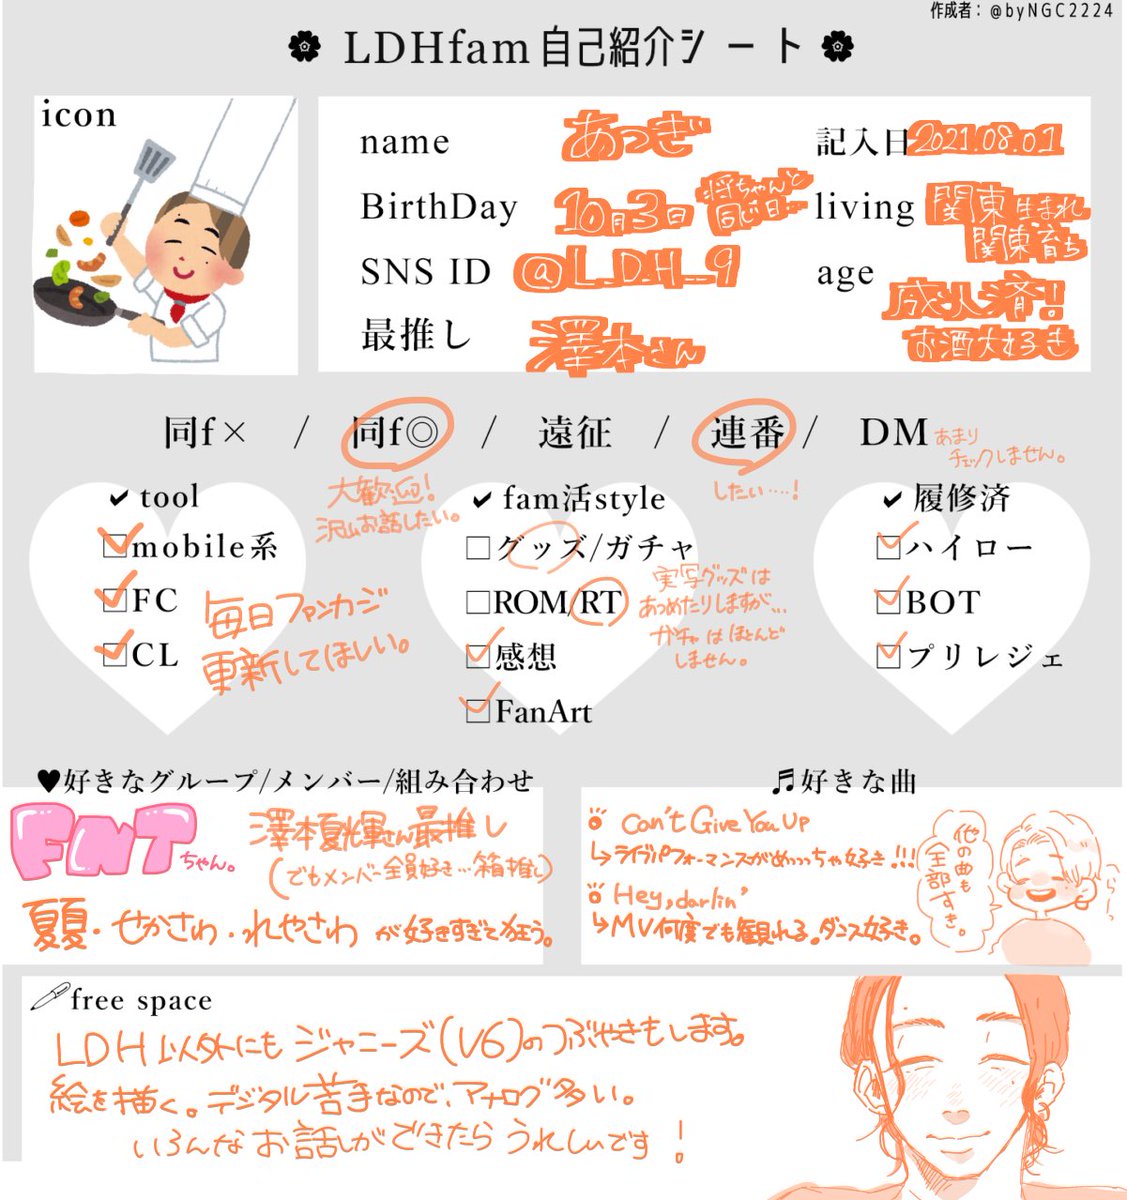 作成者：@byNGC2224
LDHfam自己紹介シート
icon
name あつぎ
記入日 2021.08.01
BirthDay 10月3日 将ちゃんと同じ日…
living 関東生まれ
関東育ち
SNS ID @L_D_H__9
age 成人済！
お酒大好き
最推し 澤本さん
同f× / 同f◎ / 遠征 / 連番 / DM
あまり
チェックしません。
大歓迎！
沢山お話したい。
したい…！
✔tool
□mobile系
□FC
□CL
毎日ファンカジ
更新してほしい。
✔fam活style
□グッズ/ガチャ
□ROM/RT
□感想
□FanArt
実写グッズは
あつめたりしますが…
ガチャはほとんど
しません。
✔履修済
□ハイロー
□BOT
□プリレジェ
♥好きなグループ/メンバー/組み合わせ
FNTちゃん。
澤本夏輝さん最推し
(でもメンバー全員好き…箱推し)
夏夏・せかさわ・れやさわ が好きすぎて狂う。
♬好きな曲
Can't Give You Up
↳ライブパフォーマンスがめっっっちゃ好き!!!
Hey, darlin'
↳MV何度でも観れる。ダンス好き。
他の曲も
全部すき。
free space
LDH以外にもジャニーズ(V6)のつぶやきもします。
絵を描く。デジタル苦手なので、アナログ多い。
いろんなお話しができたらうれしいです！